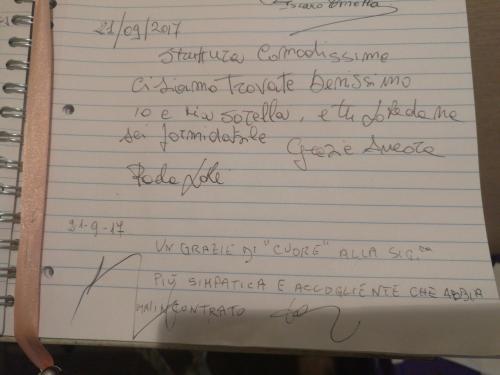 21/09/2017
Struttura Comodissima
ci siamo trovate benissimo
io e mia sorella, e tu Loredana
sei formidabile
Grazie Ancora
Paola
21-9-17
UN GRAZIE DI "CUORE" ALLA SIG.RA
PIÙ SIMPATICA E ACCOGLIENTE CHE ABBIA
MAI INCONTRATO